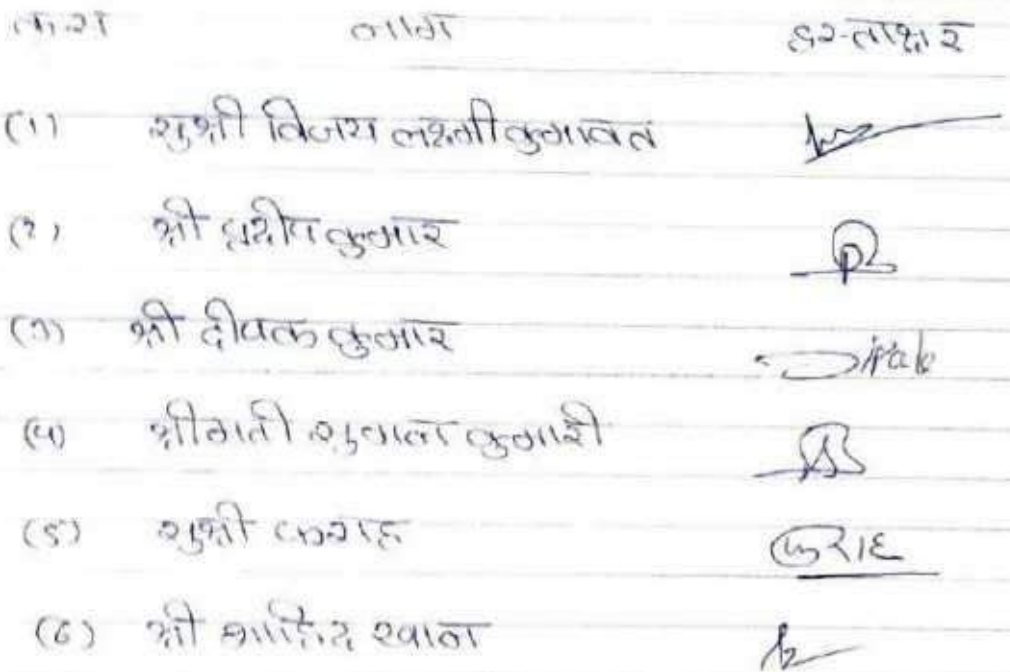 नाम हस्ताक्षर
(1) सुश्री विजय लक्ष्मी कुमावत
(2) श्री प्रदीप कुमार
(3) श्री दीपक कुमार Dipak
(4) श्रीमती कुमारी
(5) सुश्री फराह फराह
(6) श्री खान